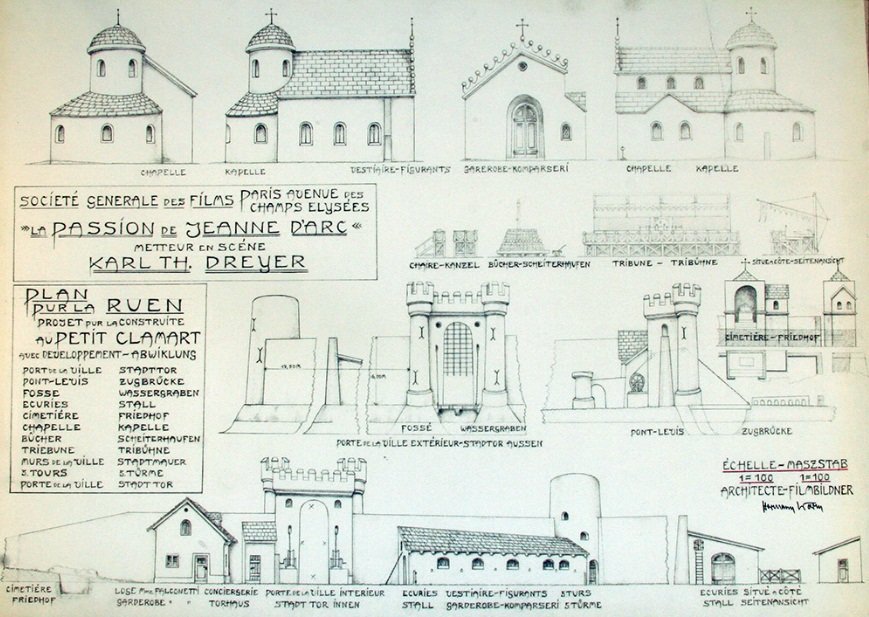 CHAPELLE KAPELLE VESTIAIRE-FIGURANTS GAREROBE-KOMPARSERI CHAPELLE KAPELLE
SOCIETÉ GENERALE DES FILMS PARIS AVENUE DES
CHAMPS ELYSÉES
"LA PASSION DE JEANNE D'ARC"
METTEUR EN SCÉNE
KARL TH. DREYER
CHAIRE-KANZEL BÛCHER-SCHEITERHAUFEN TRIBUNE - TRIBÜHNE SITUÉ A CÔTÉ-SEITENANSICHT
CIMETIÉRE-FRIEDHOF
PLAN
PUR LA RUEN
PROJET PUR LA CONSTRUITE
AU PETIT CLAMART
AVEC DEVELOPPEMENT-ABWIKLUNG
PORT DE LA VILLE STADTTOR
PONT-LEVIS ZUGBRÜCKE
FOSSE WASSERGRABEN
ECURIES STALL
CIMETIÉRE FRIEDHOF
CHAPELLE KAPELLE
BÛCHER SCHEITERHAUFEN
TRIEBUNE TRIBÜHNE
MURS DE LA VILLE STADTMAUER
5.TOURS 5.TÜRME
PORTE DE LA VILLE STADT TOR
FOSSÉ WASSERGRABEN
PORTE DE LA VILLE EXTÉRIEUR-STADTOR AUSSEN
PONT-LEVIS ZUGBRÜCKE
ÉCHELLE-MASZSTAB
1=100 1=100
ARCHITECTE-FILMBILDNER
CIMETIÉRE
FRIEDHOF
LOGE Mme FALCONETTI CONCIERGERIE PORTE DE LA VILLE INTERIEUR ECURIES VESTIAIRE-FIGURANTS STURS ECURIES SITUÉ A CÔTÉ
GARDEROBE " " TORHAUS STADT TOR INNEN STALL GARDEROBE-KOMPARSERI STÜRME STALL SEITENANSICHT